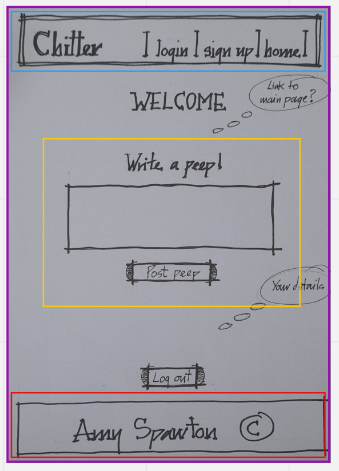 Chitter | login | sign up | home |
WELCOME
Link to
main page?
Write a peep!
Post peep
Your details
Log out
Amy Spawton ©